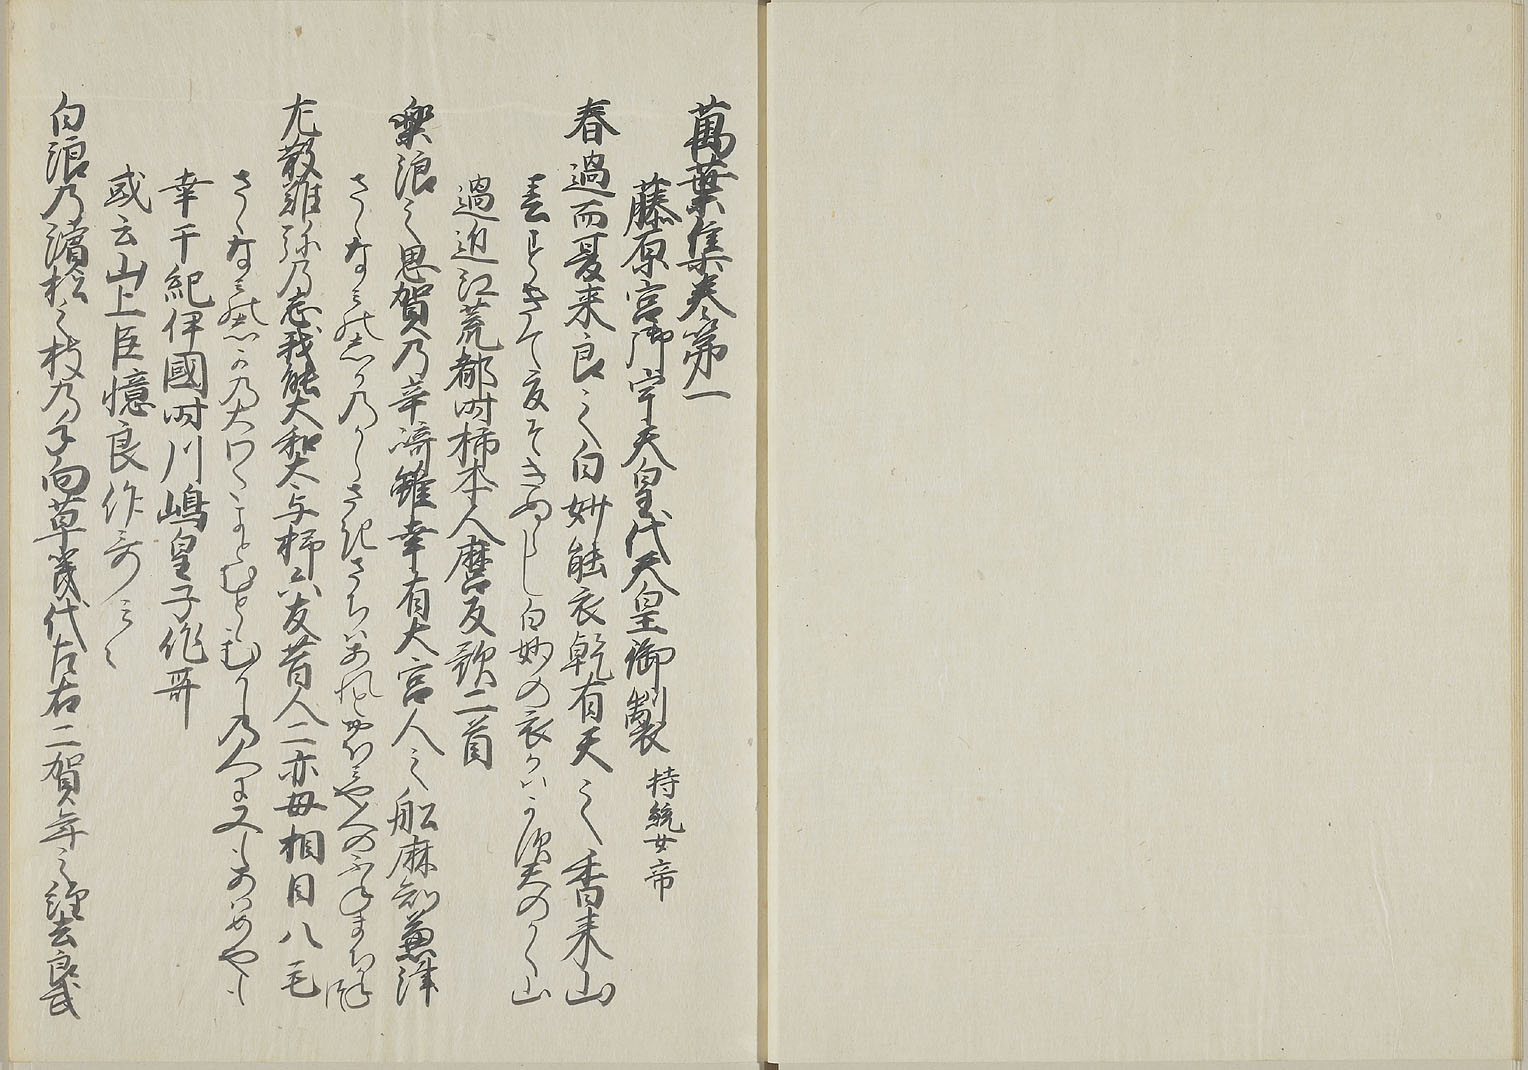 萬葉集巻第一
藤原宮御宇天皇代天皇御製 持統女帝
春過而夏来良之白妙能衣乾有天之香来山
春すきて夏そきぬらし白妙の衣かはかす天のかく山
過近江荒都時柿本人麿反歌二首
樂浪之思賀乃辛崎雖幸有大宮人之船麻知兼津
さゝなみのしかのからさきさちはあれとおほみや人のふねまちかね
左散難弥乃志我能大和太与杼六友昔人二亦母相目八毛
さゝなみのしかの大わたよとむともむかしの人に又もあはめやも
幸于紀伊國時川嶋皇子作哥
或云山上臣憶良作哥云々
白浪乃濱松之枝乃手向草幾代左右二賀年之經去良武